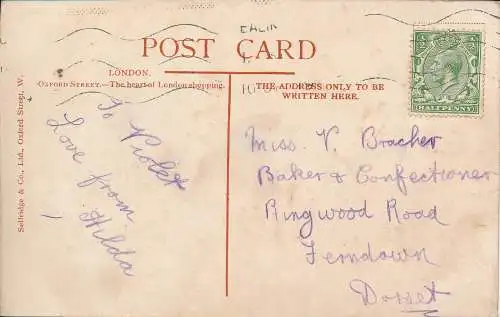 POST CARD
LONDON.
OXFORD STREET.—The heart of London shopping.
THE ADDRESS ONLY TO BE
WRITTEN HERE.
Selfridge & Co., Ltd., Oxford Street, W.
To Violet
Love from
Hilda
Miss. V. Bracher
Baker & Confectioner
Ringwood Road
Ferndown
Dorset
HALFPENNY